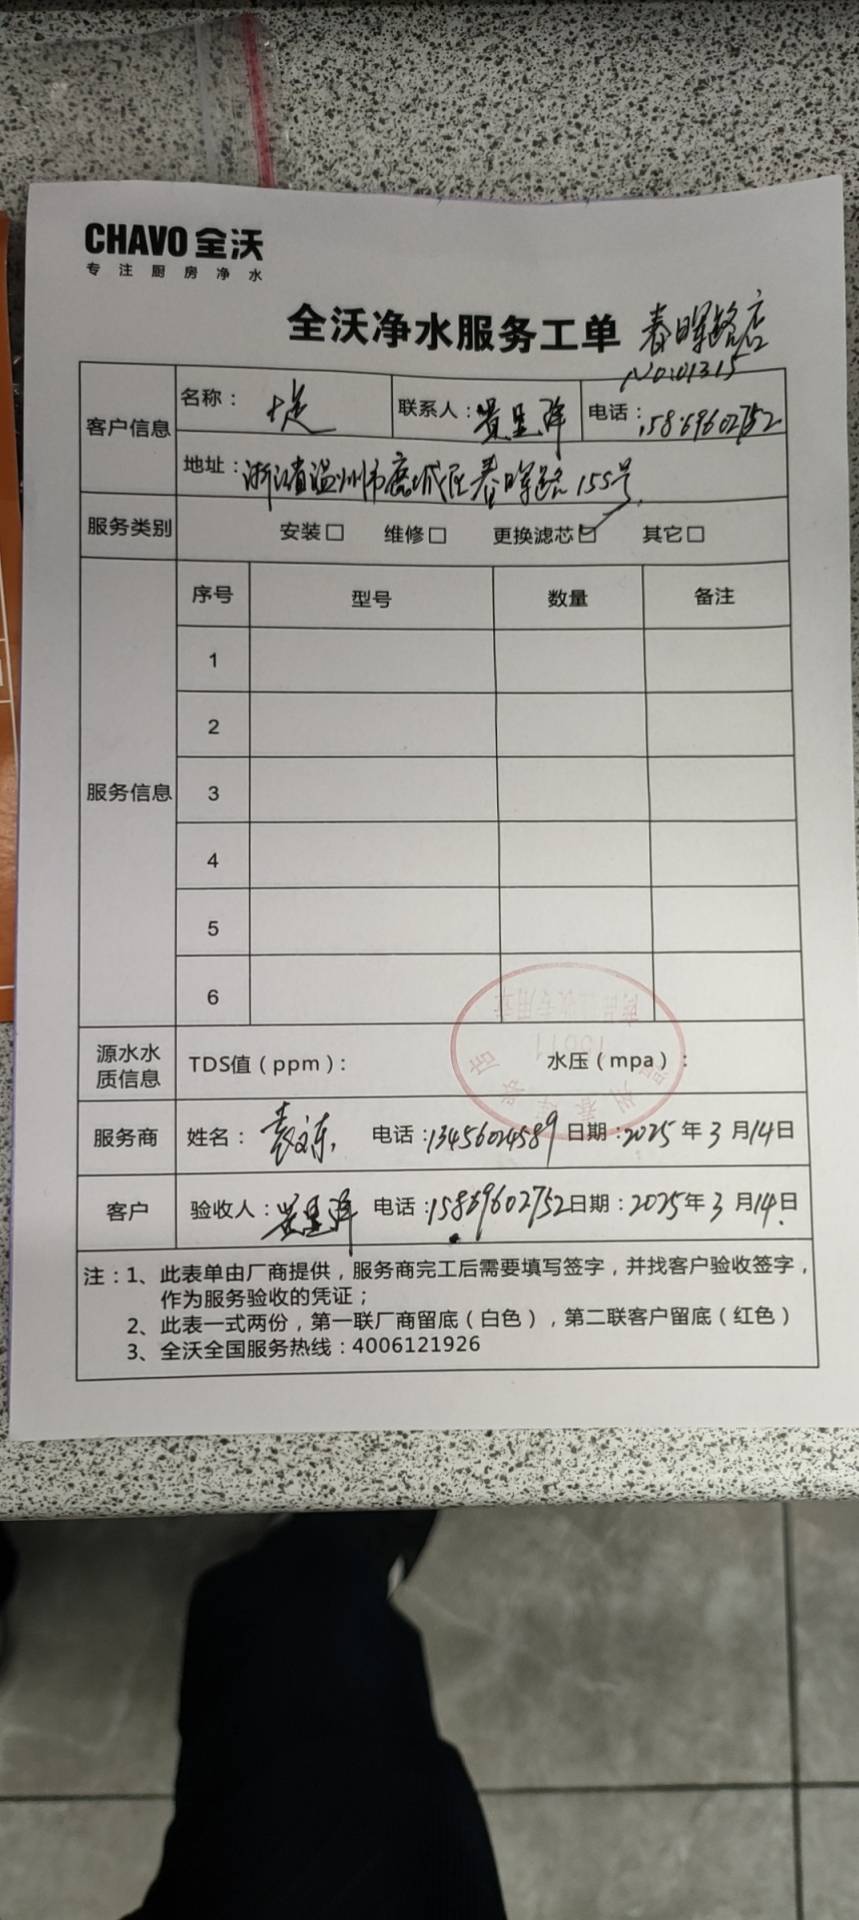 CHAVO 全沃
专注厨房净水
全沃净水服务工单 春晖路店
No:01315
客户信息 名称： 联系人：黄 电话：15869602752
地址：浙江省温州市鹿城区春晖路155号
服务类别 安装□ 维修□ 更换滤芯☑ 其它□
服务信息 序号 型号 数量 备注
1
2
3
4
5
6
源水水质信息 TDS值（ppm）： 水压（mpa）：
服务商 姓名：袁文东 电话：13456024589 日期：2025年3月14日
客户 验收人：黄 电话：15869602752 日期：2025年3月14日
注：1、此表单由厂商提供，服务商完工后需要填写签字，并找客户验收签字，
作为服务验收的凭证；
2、此表一式两份，第一联厂商留底（白色），第二联客户留底（红色）
3、全沃全国服务热线：4006121926